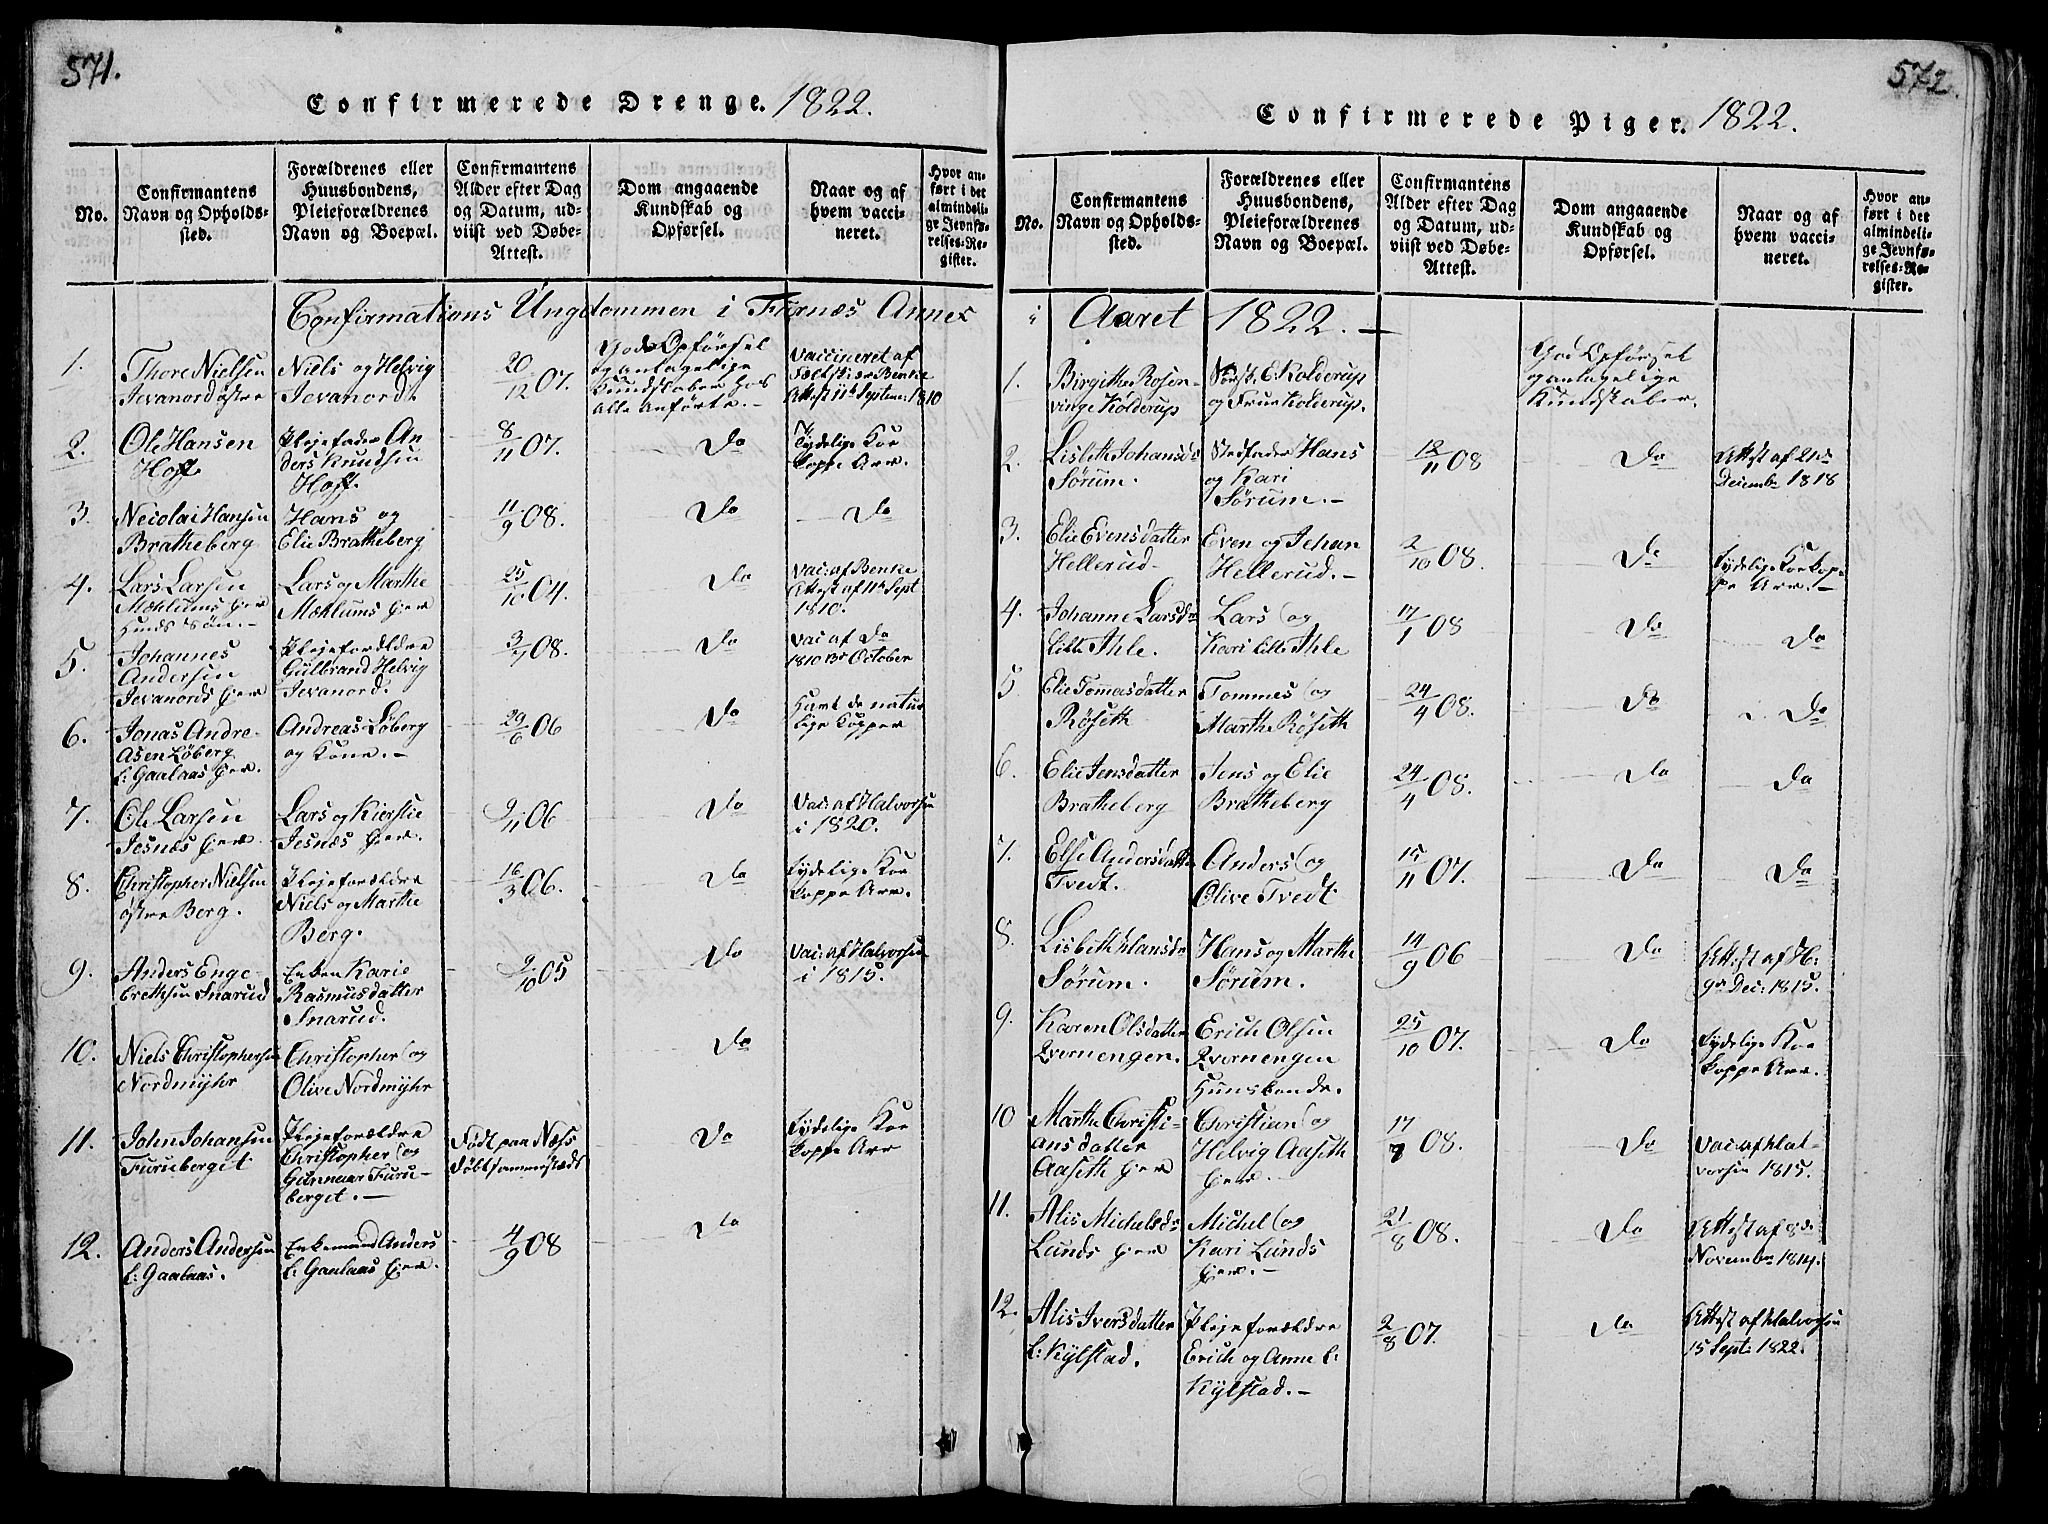 571.
Confirmerede Drenge. 1822.
No.
Confirmantens
Navn og Opholds-
sted.
Forældrenes eller
Huusbondens,
Pleieforældrenes
Navn og Boepæl.
Confirmantens
Alder efter Dag
og Datum, ud-
viist ved Døbe-
Attest.
Dom angaaende
Kundskab og
Opførsel.
Naar og af
hvem vacci-
neret.
Hvor an-
ført i det
almindeli-
ge Jevnfø-
relses-Re-
gister.
Confirmations Ungdommen i Furnæs Annex
1.
Thore Nielsen
Jevanord østre
Niels og Helvig
Jevanord.
20/12 07.
God Opførsel
og antagelige
Kundskaber hos
Alle anførte.-
Vaccineret af
Benke
Attest 11te Septem: 1810
2.
Ole Hansen
Hoff
Plejefader An
ders Knudsen
Hoff.
8/11 07.
Do
Tydelige Koe
koppe Arr.
3.
Nicolai Hansen
Bratheberg
Hans og
Elie Bratheberg
11/9 08.
Do
Do
4.
Lars Larsen
Mæhlums Ejer
Lars og Marthe
Mæhlums Ejer
25/10 04.
Do
Vac: af Benke
Attest af 11te Sept
1810.
5.
Johannes
Andersen
Jevanords Ejer
Plejeforældre
Gulbrand Helvig
Jevanord.
3/7 08.
Do
Vac af Do
1810 October
6.
Jonas Andre-
asen Løberg
l: Gaalaas Ejer.
Andreas Løberg
og Kone.-
29/6 06
Do
Havt de natur
lige Kopper
7.
Ole Larsen
Jesnæs Ejer
Lars og Kierstie
Jesnæs Ejer.
9/11 06
Do
Vac: af Halvorsen
i 1820.
8.
Christopher Nielsen
østre Berg.
Plejeforældre
Niels og Marthe
Berg.
16/3 06.
Do
Tydelige Koe
koppe Arr.
9.
Anders Enge-
brethsen Snarud
Enken Karie
Rasmusdatter
Snarud.
9/10 05
Do
Vac: af Halvorsen
i 1815.
10.
Niels Christophersen
Nordmyhr
Christopher og
Olive Nordmyhr
Do
11.
John Johansen
Furuberget
Plejeforældre
Christopher og
Gunnaar Furu-
berget.-
Født paa Næss
Døbt sammesteds
Do
Tydelige Koe
koppe Arr
12.
Anders Andersen
l: Gaalaas.
Enkemand Anders
l: Gaalaas Ejer.
4/9 08
Do
572.
Confirmerede Piger. 1822.
No.
Confirmantens
Navn og Opholds-
sted.
Forældrenes eller
Huusbondens,
Pleieforældrenes
Navn og Boepæl.
Confirmantens
Alder efter Dag
og Datum, ud-
viist ved Døbe-
Attest.
Dom angaaende
Kundskab og
Opførsel.
Naar og af
hvem vacci-
neret.
Hvor an-
ført i det
almindeli-
ge Jevnfø-
relses-Re-
gister.
i Aaret 1822.-
1.
Birgithe Rosen-
vinge Kolderup
E: Kolderup
og Frue Kolderup.
God Opførsel
og antagelige
Kundskaber.
2.
Lisbeth Johansdr
Sørum.
Stedfader Hans
og Kari
Sørum.-
12/11 08
Do
Attest af 21de
Decembr 1818
3.
Elie Evensdatter
Hellerud.
Even og Jehan
Hellerud.-
2/10 08.
Do
Tydelige Koekop-
pe Arr.-
4.
Johanne Larsdr
litle Ihle.
Lars og
Kari litle Ihle
17/1 08
Do
Do
5
Elie Tommesdatter
Røseth
Tommes og
Marthe Røseth
24/4 08.
Do
Do
6.
Elie Jensdatter
Bratheberg
Jens og Elie
Bratheberg
24/4 08.
Do
Do
7.
Else Andersdatter
Tvedt.
Anders og
Olive Tvedt
15/11 07.
Do
Do
8.
Lisbeth Hansdr
Sørum.
Hans og Marthe
Sørum.
14/9 06
Do
Attest af H:
9de Dec: 1815.
9.
Karen Olsdatter
Qvernengen.
Erich Olsen
Qvernengen
Huusbonde.
25/10 07.
Do
Tydelige Koe
koppe Arr.
10
Marthe Christi-
ansdatter
Aaseth Ejer
Christian og
Helvig Aaseth
Ejer.
17/9 08.
Do
Vac: af Hal-
vorsen 1815.
11.
Alis Michelsdr
Lunds Ejer
Michel og
Kari Lunds
Ejer.-
21/8 08.
Do
Attest af 8de
Novembr 1814.
12.
Alis Iversdatter
l: Kylstad.
Plejeforældre
Erich og Anne l:
Kylstad.-
2/8 07.
Do
Attest af Halvorsen
15 Sept: 1822.